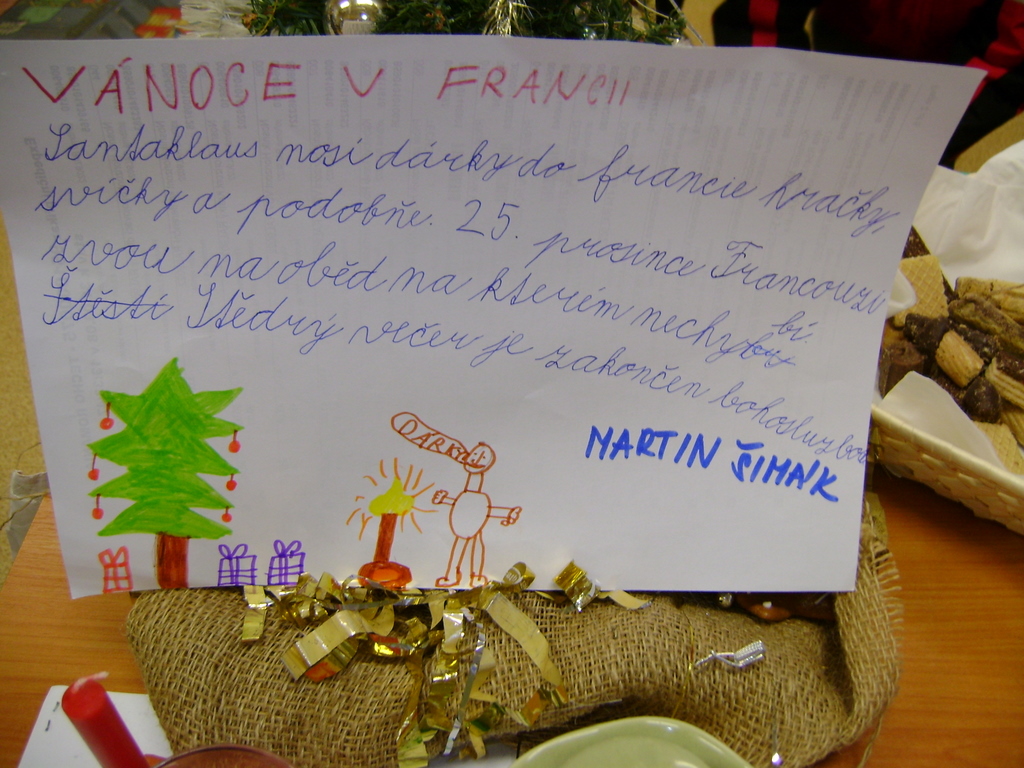 VÁNOCE V FRANCII
Santaklaus nosí dárky do francie hračky,
svíčky a podobňe. 25. prosince Francouzi
zvou na oběd na kterém nechybí.
Štěstí Štědrý večer je zakončen bohosluzbou
MARTIN ŠIMÁK
DÁRKY